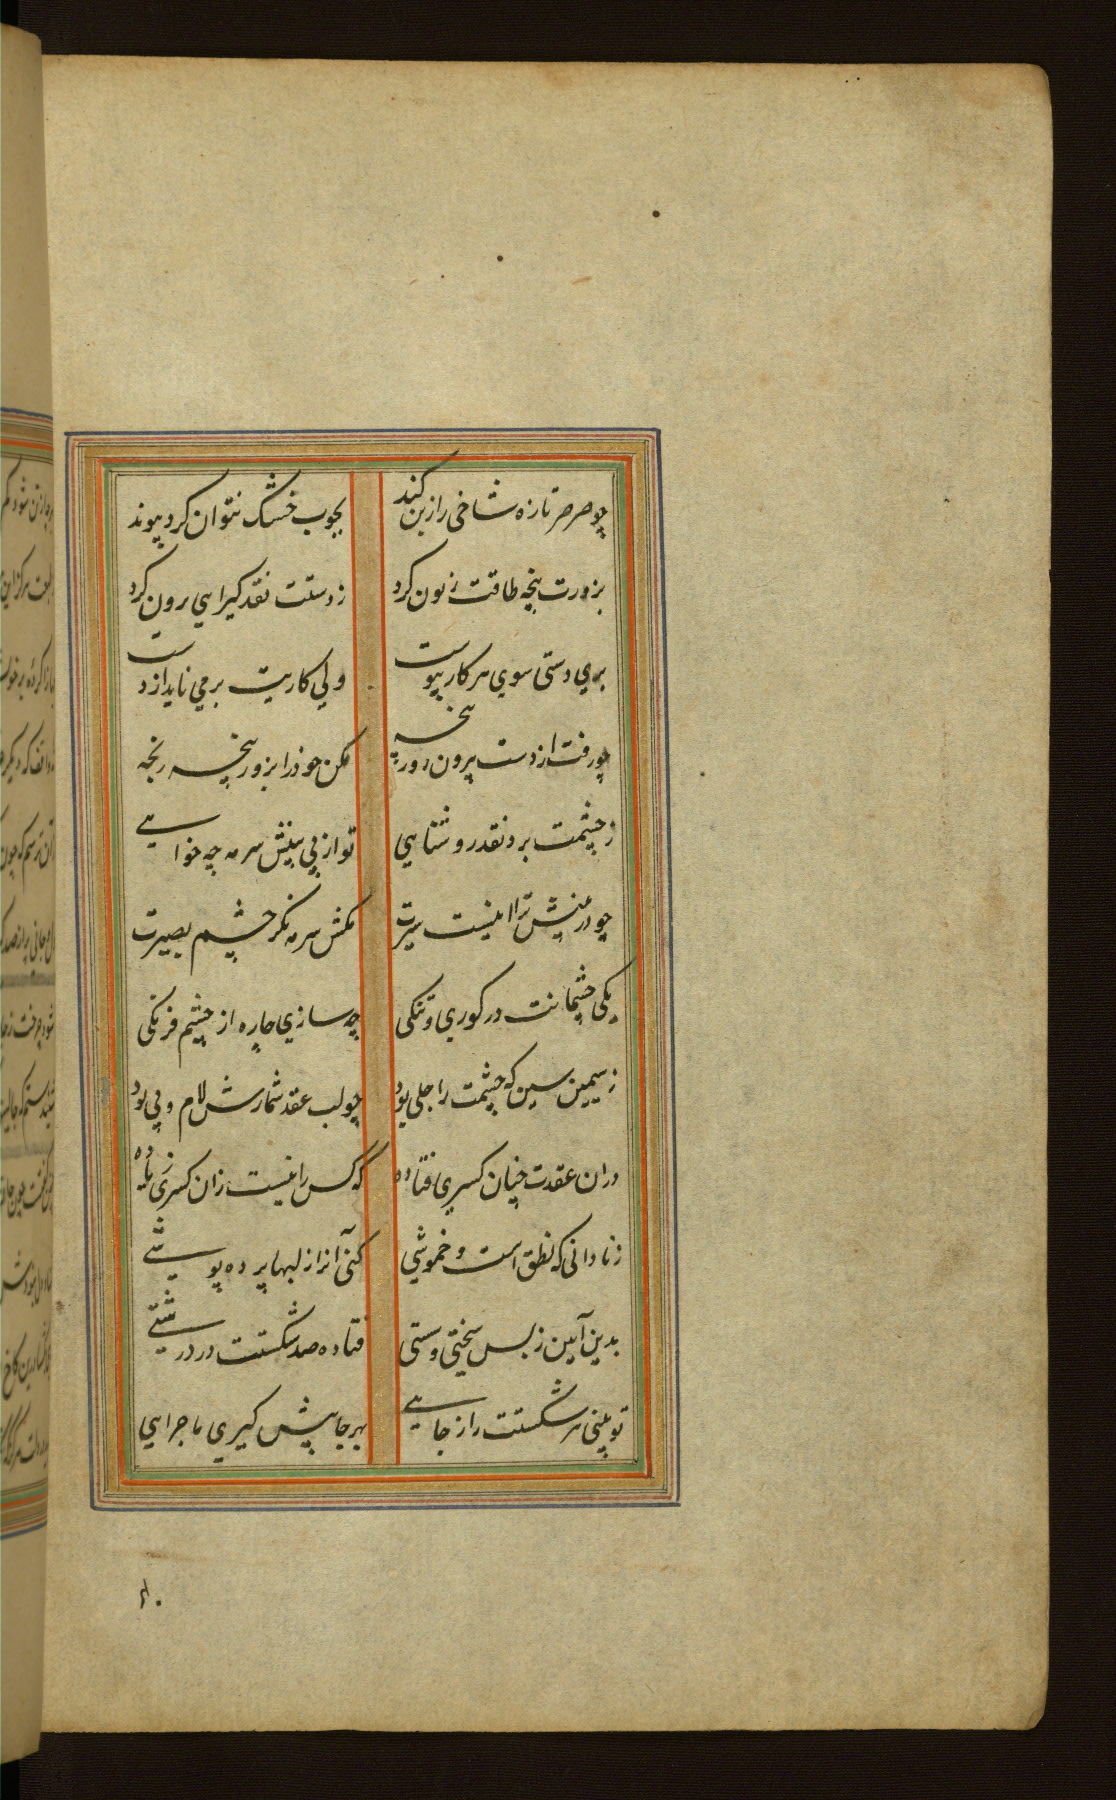 چو صرصر تازه شاخی را ز بن کند بچوب خشک نتوان کرد پیوند
بزورت پنجه طاقت زبون کرد ز دستت نقد کیرایی برون کرد
بری دستی سوی هر کار پیوست ولی کاریت بر می ناید از دست
چو رفت از دست بیرون زور پنجه مکن خود را بزور پنجه رنجه
ز چشمت برد نقد روشنایی تو از پی بینش سرمه چه خواهی
چو در بینش ترا نیست سیرت مکش سرمه نکر چشم بصیرت
یکی چشمانت در کوری و تنکی چه سازی چاره از چشم فرنکی
ز سیمین سین که چشمت را جلی بود چو لب عقد شمارش لام و پی بود
دران عقدت چنان کسری فتاده که کس را نیست زان کسری زیاده
ز نادانی که نطق است و خموشی کنی آنرا ز لبها پرده پوشی
بدین آیین ز بس سختی و سستی فتاده صد شکستت در درشتی
تو بینی هر شکستت را ز جایی بهر جا پیش کیری ماجرایی